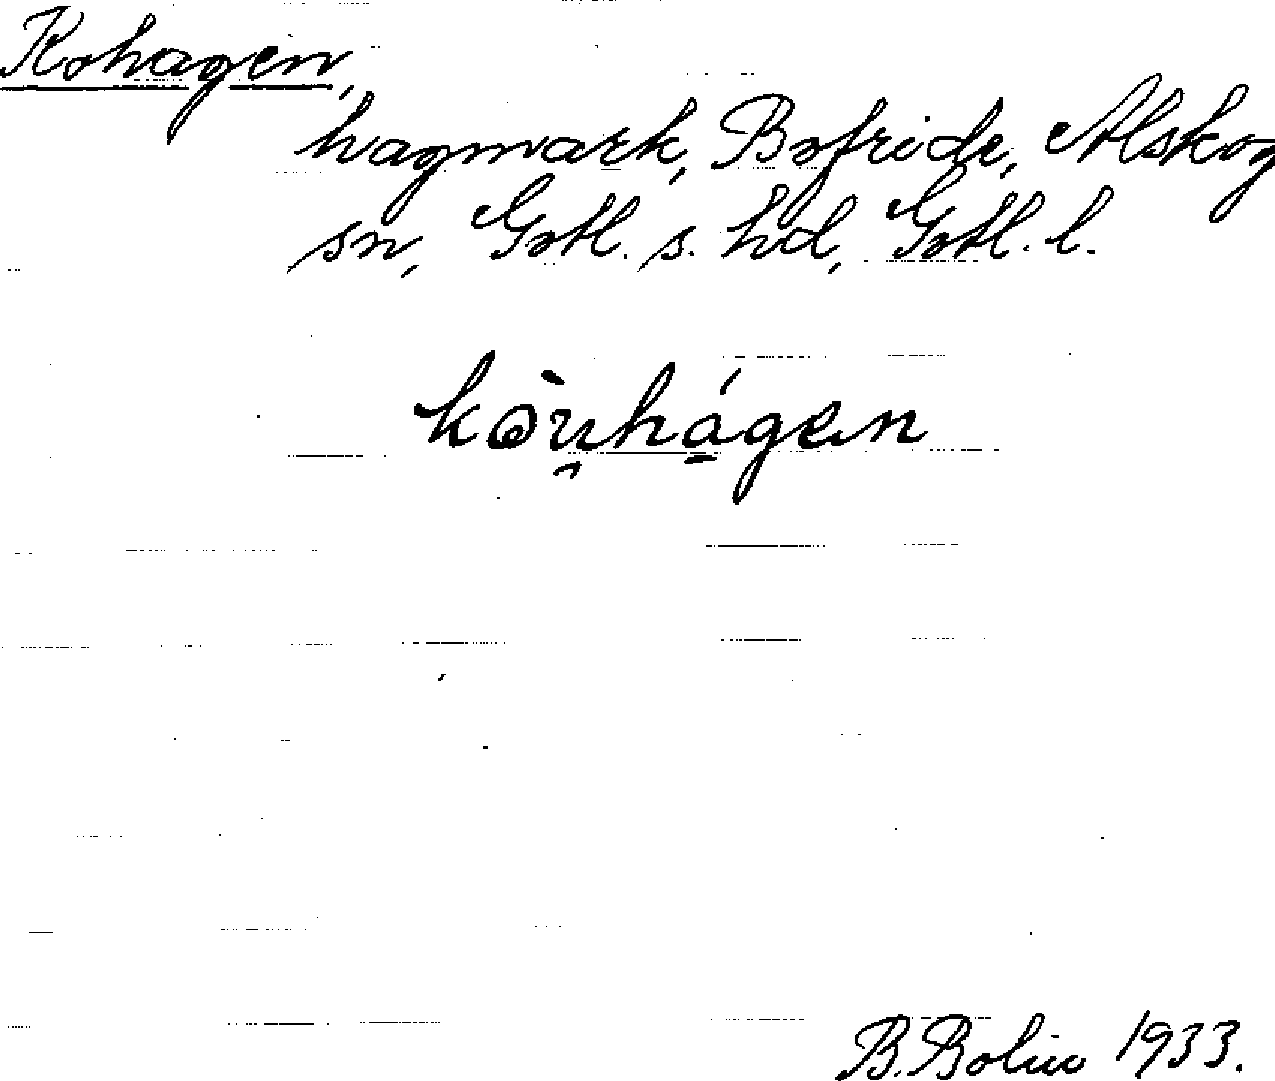 Kohagen,
hagmark, Bofride, Alskog
sn, Gotl. s. hd, Gotl. l.
kòu̯hágen
B. Bolin 1933.